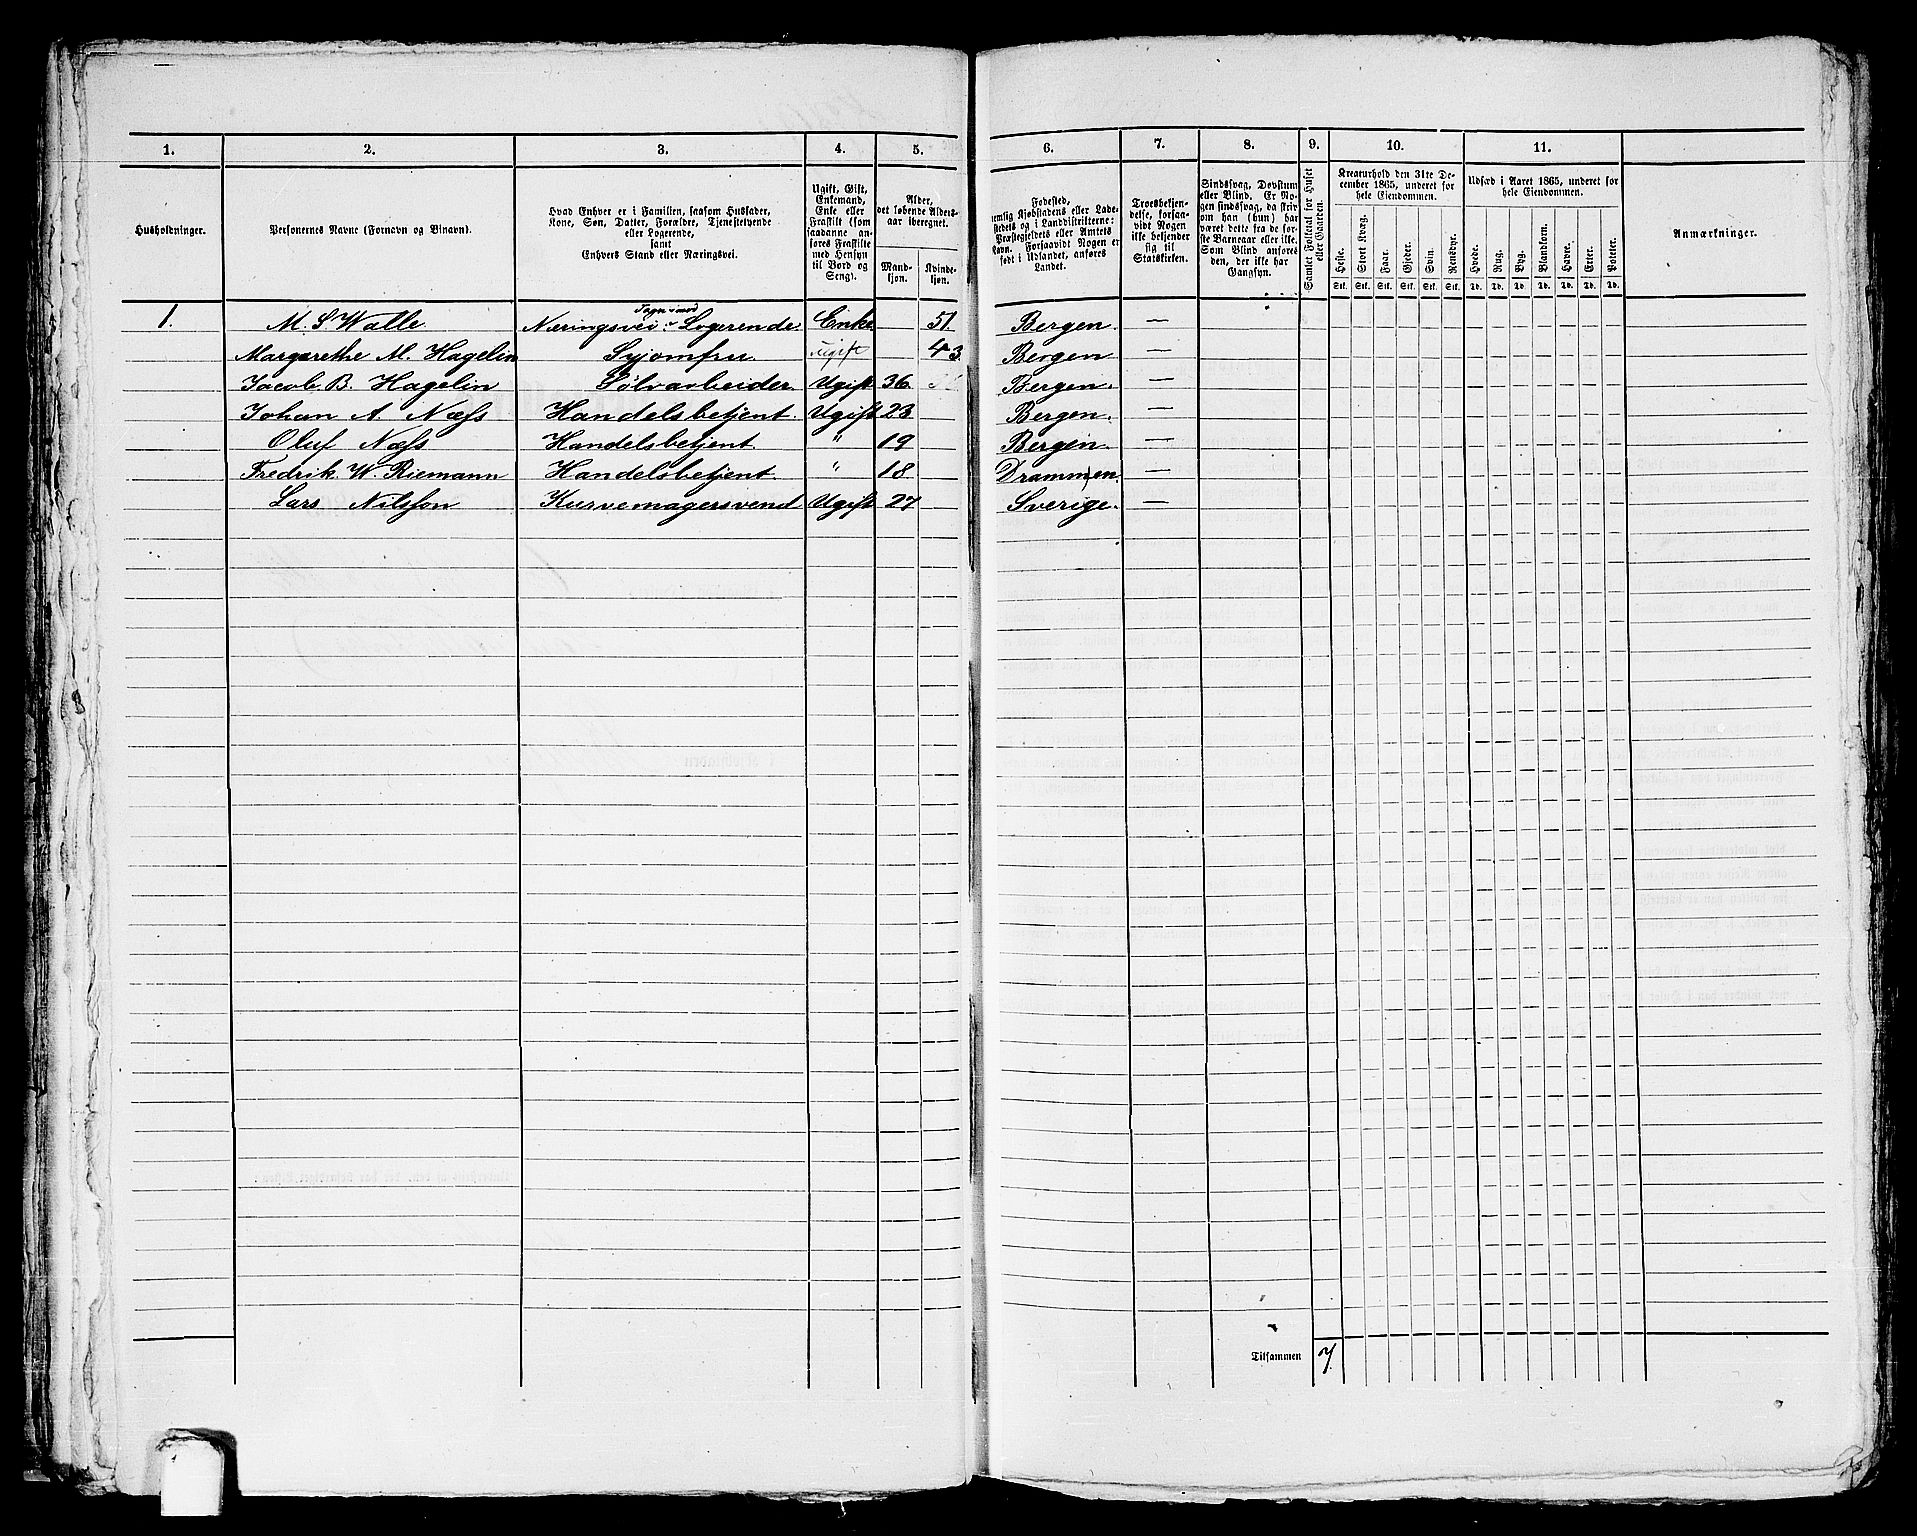 1. 2. 3. 4. 5. 6. 7. 8. 9. 10. 11.
Husholdninger.
Personernes Navne (Fornavn og Binavn).
Hvad Enhver er i Familien, saasom Husfader,
Kone, Søn, Datter, Forældre, Tjenestetyende
eller Logerende,
samt
Enhvers Stand eller Næringsvei.
Ugift, Gift,
Enkemand,
Enke eller
Fraskilt (som
saadanne an-
føres Fraskilte
med Hensyn
til Bord og
Seng).
Alder,
det løbende Alders-
aar iberegnet.
Mand-
kjøn.
Kvinde-
kjøn.
Fødested,
nemlig Kjøbstadens eller Lade-
stedets og i Landdistrikterne:
Præstegjeldets eller Amtets
Navn. Forsaavidt Nogen er
født i Udlandet, anføres
Landet.
Troesbekjen-
delse, forsaa-
vidt Nogen
ikke bekjender
sig til
Statskirken.
Sindssvag, Døvstum
eller Blind. Er No-
gen sindssvag, da skriv
om han (hun) har
været dette fra de før-
ste Barneaar eller ikke.
Som Blind anføres
den, der ikke har
Gangsyn.
Samlet Folketal for Huset
eller Gaarden.
Kreaturhold den 31te De-
cember 1865, underet for
hele Eiendommen.
Heste. Stort Kvæg. Faar. Gjeder. Svin. Rensdyr.
Stk. Stk. Stk. Stk. Stk. Stk.
Udsæd i Aaret 1865, underet for
hele Eiendommen.
Hvede. Rug. Byg. Blandkorn. Havre. Erter. Poteter.
Td. Td. Td. Td. Td. Td. Td.
Anmærkninger.
1. M. S Walle Næringsvei: Logerende Enke 51 Bergen. —
Margarethe M. Hagelin Syjomfru. Ugift 43 Bergen —
Jacob B. Hagelin Sølvarbeider. Ugift 36 Bergen. —
Johan A. Næss Handelsbetjent. Ugift 23 Bergen. —
Oluf Næss Handelsbetjent " 19 Bergen. —
Fredrik. W. Riemann Handelsbetjent. " 18 Drammen. —
Lars Nilsson Kurvemagersvend Ugift 27 Sverige. —
Tilsammen 7